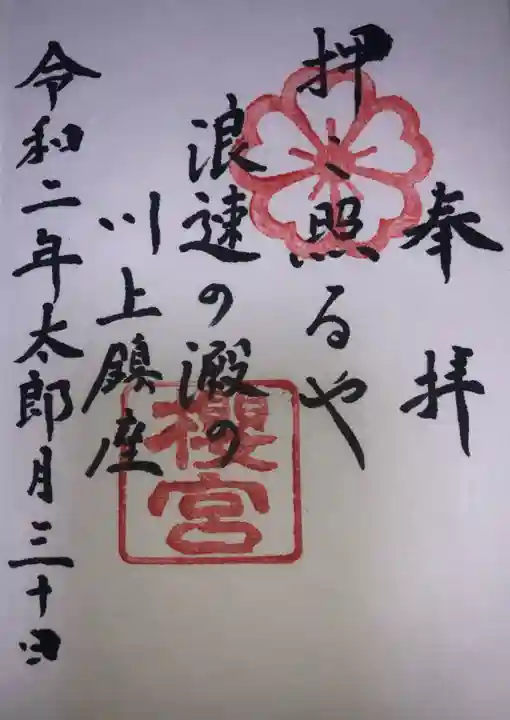 奉拝
押ゝ照るや
浪速の澱の
川上鎮座
令和二年太郎月三十日
櫻宮